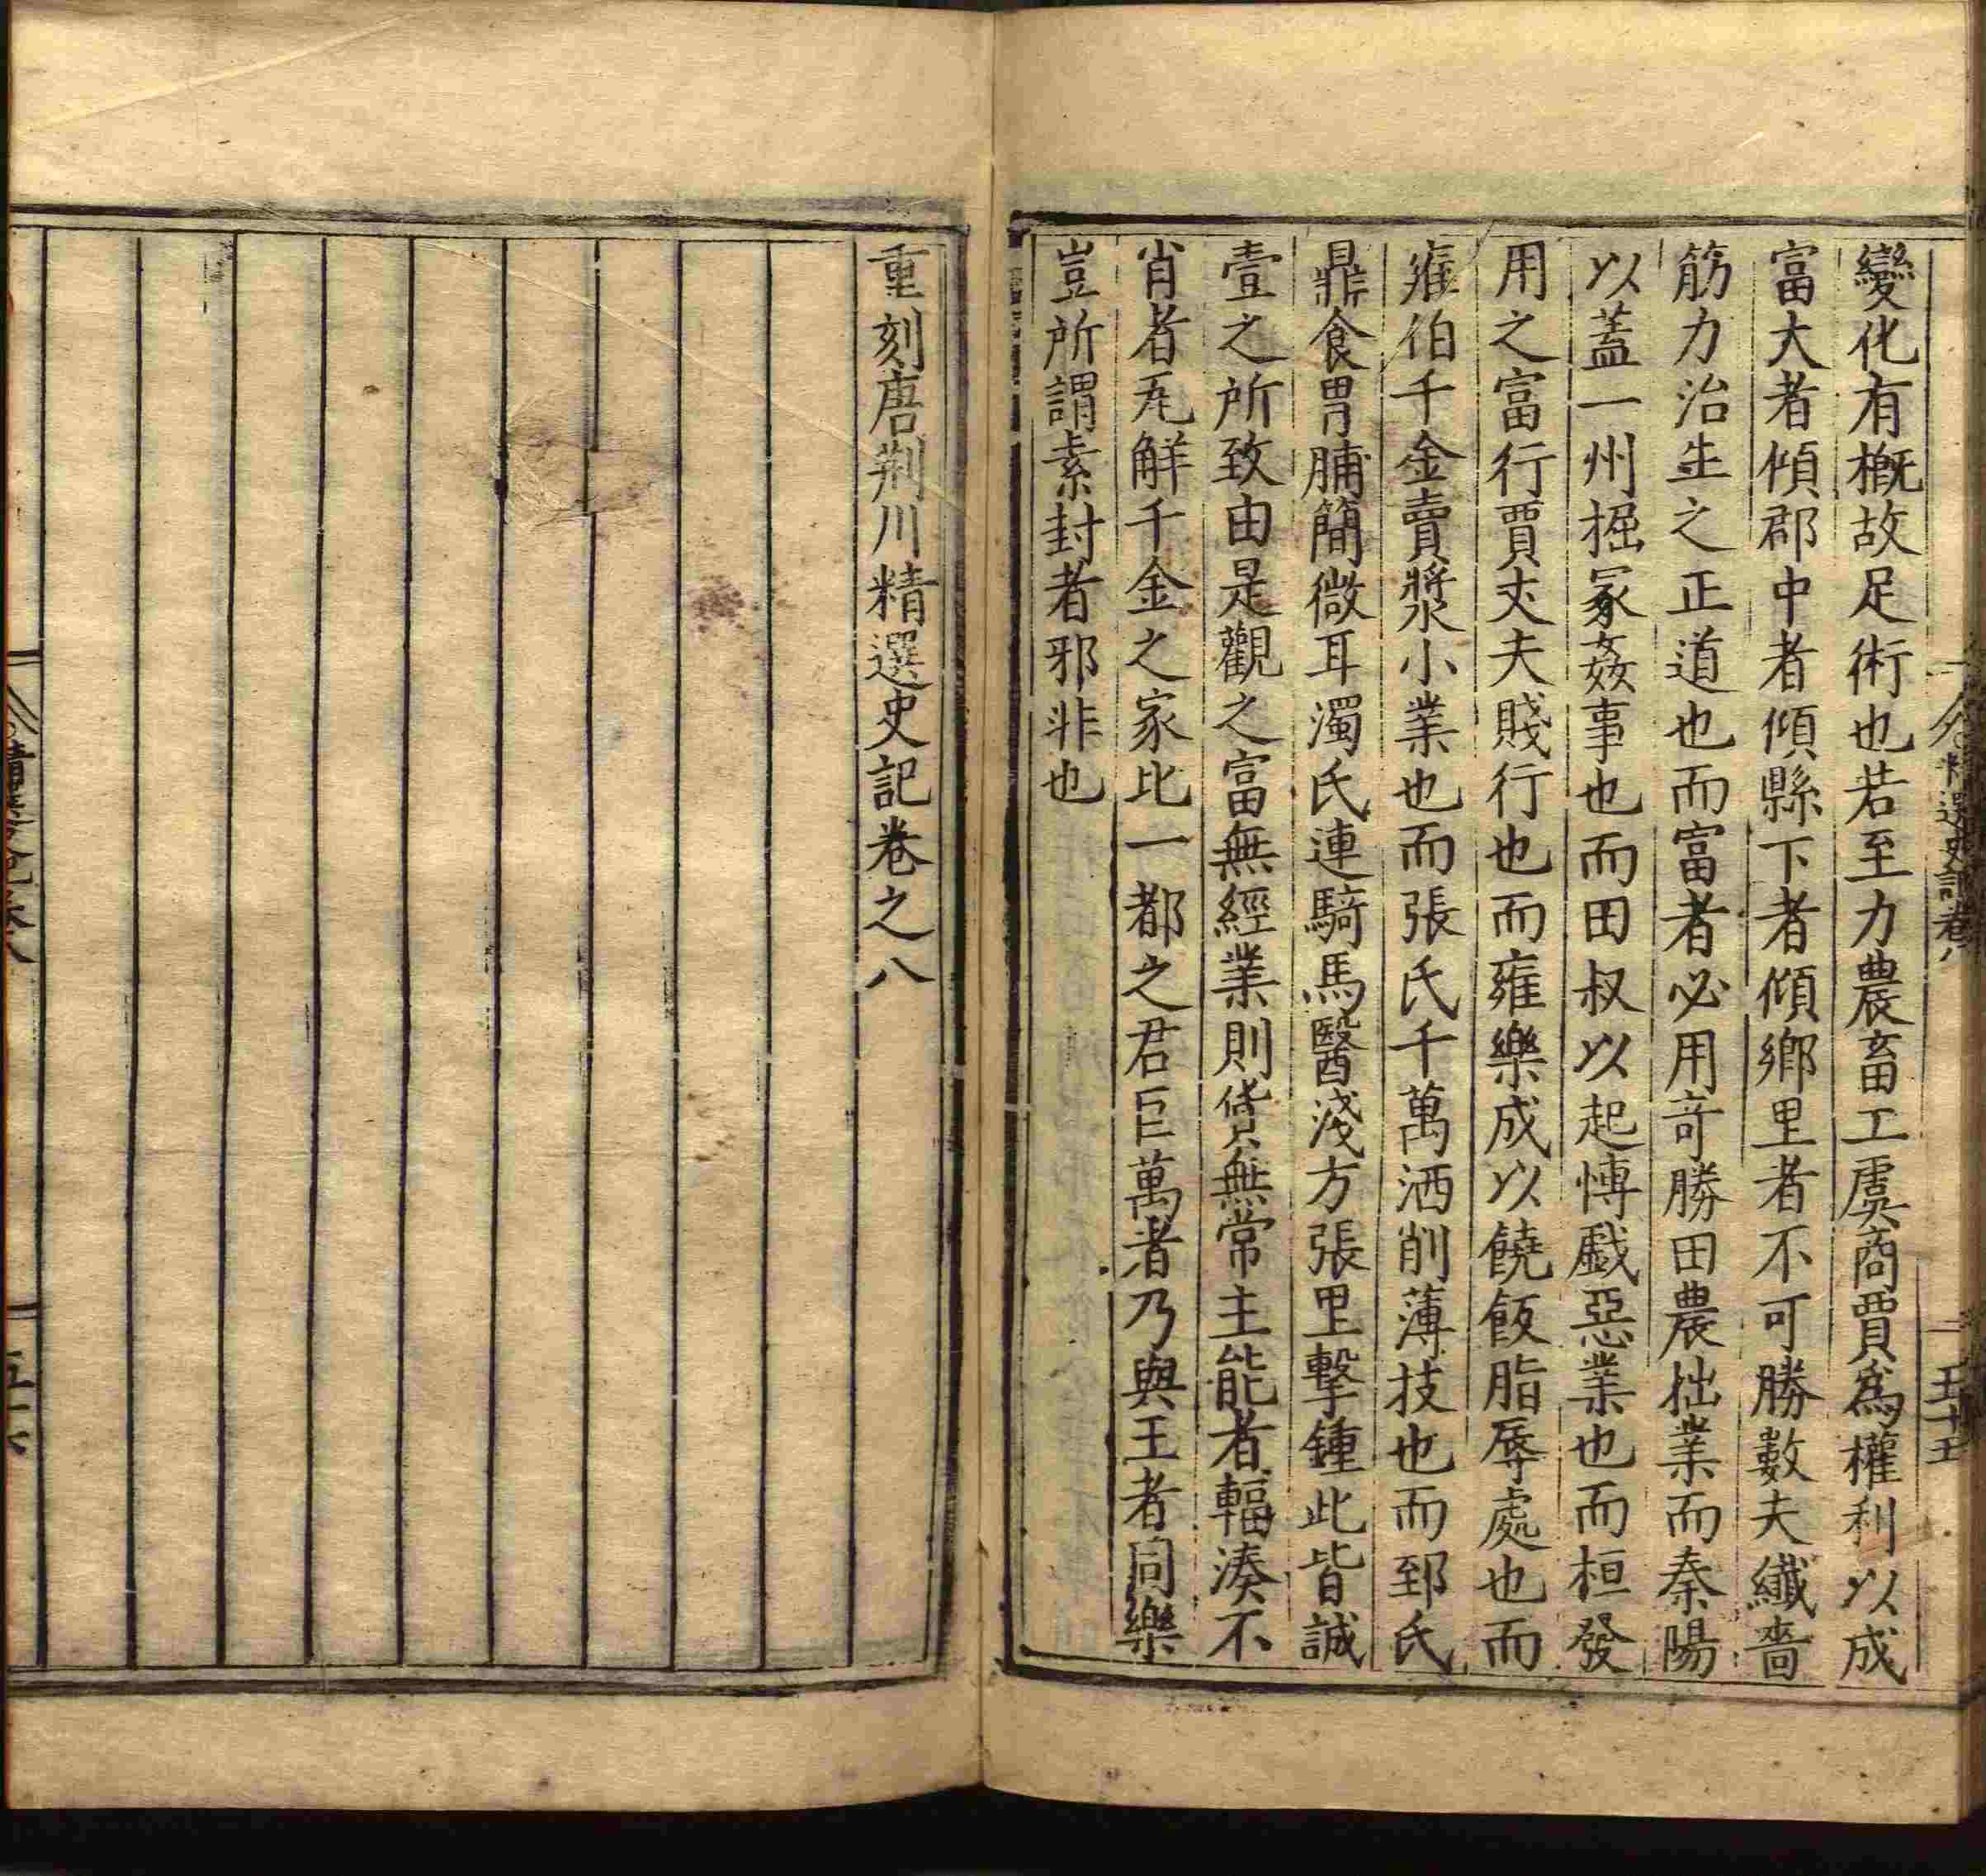 精選史記卷八
五十五
變化有概故足術也若至力農畜工虞商賈爲權利以成
富大者傾郡中者傾縣下者傾鄉里者不可勝數夫纖嗇
筋力治生之正道也而富者必用竒勝田農拙業而秦陽
以葢一州掘冢姦事也而田叔以起慱戱惡業也而桓發
用之富行賈丈夫賤行也而雍樂成以饒飯脂辱處也而
雍伯千金賣漿小業也而張氏千萬洒削薄技也而郅氏
鼎食胃脯簡微耳濁氏連騎馬醫淺方張里擊鍾此皆誠
壹之所致由是觀之富無經業則貨無常主能者輻湊不
肖者瓦解千金之家比一都之君巨萬者乃與王者同樂
豈所謂素封者邪非也
重刻唐荆川精選史記卷之八